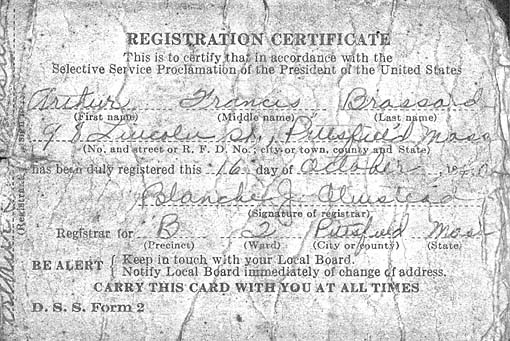 REGISTRATION CERTIFICATE
This is to certify that in accordance with the
Selective Service Proclamation of the President of the United States
Arthur Francis Brassard
(First name) (Middle name) (Last name)
Lincoln St., Pittsfield Mass
(No. and street or R. F. D. No.; city or town, county and State)
has been duly registered this 16 day of October
Blanche J. Olmstead
(Signature of registrar)
Registrar for B 2 Pittsfield Mass
(Precinct) (Ward) (City or county) (State)
BE ALERT { Keep in touch with your Local Board.
Notify Local Board immediately of change of address.
CARRY THIS CARD WITH YOU AT ALL TIMES
D. S. S. Form 2